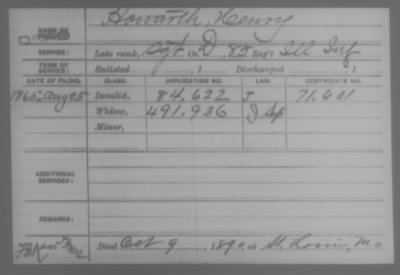 Howarth, Henry
NAME OF
SERVICE: Late rank, Sgt Co. D, 85 Reg't Ill Inf
TERM OF SERVICE: Enlisted 1 Discharged 1
DATE OF FILING. CLASS. APPLICATION NO. LAW. CERTIFICATE NO.
1865, Aug 25 Invalid, 84,622 71,601
Widow, 491,936
Minor,
ADDITIONAL SERVICES:
REMARKS:
Died Oct 9, 1890, at St. Louis, Mo